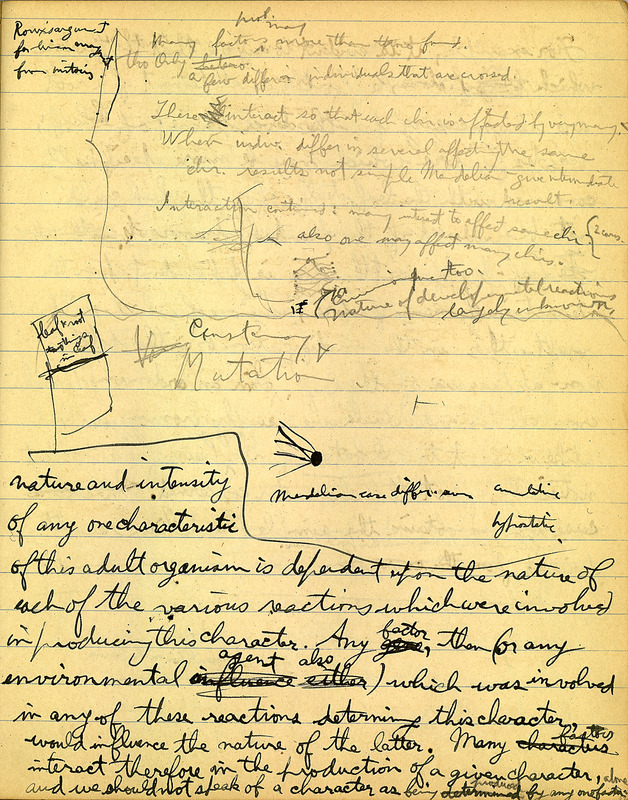 Roux's argument
for linism may
from mitosis.
prob. may
Many factors more than two found.
tho Only a few differ in individuals that are crossed.
These interact so that each chr. is affected by very many.
When indiv. differ in several affecting the same
chr. results not simple Mendelian, give intermediate
result.
Interaction : many interact to affect same chr. {2 cases.
also one may affect many chrs.
too.
Nature of developmental reactions
largely unknown
leaf & not
in leaf
Constancy &
Mutation
Mendelian case differ. cumulative
hypostatic
nature and intensity
of any one characteristic
of this adult organism is dependent upon the nature of
each of the various reactions which were involved
in producing this character. Any factor, then (or any
environmental agent also) which was involved
in any of these reactions determing this character,
would influence the nature of the latter. Many factors
interact therefore in the production of a given character,
and we should not speak of a character as being determined by any one factor alone